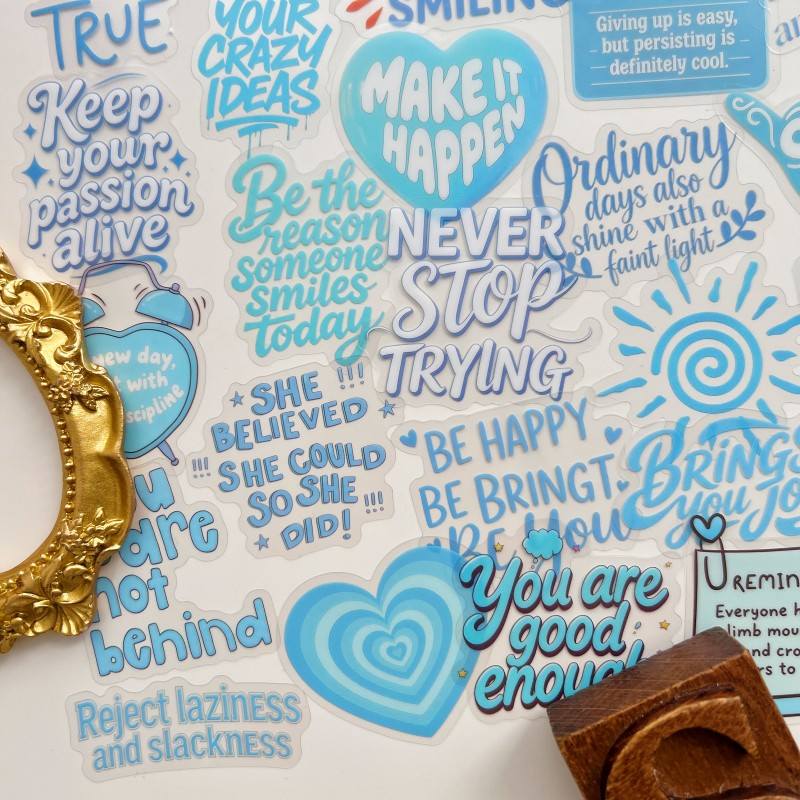 TRUE
YOUR
CRAZY
IDEAS
SMILING
Giving up is easy,
but persisting is
definitely cool.
MAKE IT
HAPPEN
Keep
your
passion
alive
Be the
reason
someone
smiles
today
Ordinary
days also
shine with a
faint light
NEVER
STOP
TRYING
new day,
with
discipline
SHE !!!
BELIEVED
!!! SHE COULD
SO SHE !!!
DID!
BE HAPPY
BE BRINGT.
BE YOU
BRINGS
you JO
are
not
behind
You are
good
enough
REMIN
Everyone h
limb mou
nd cro
rs to
Reject laziness
and slackness